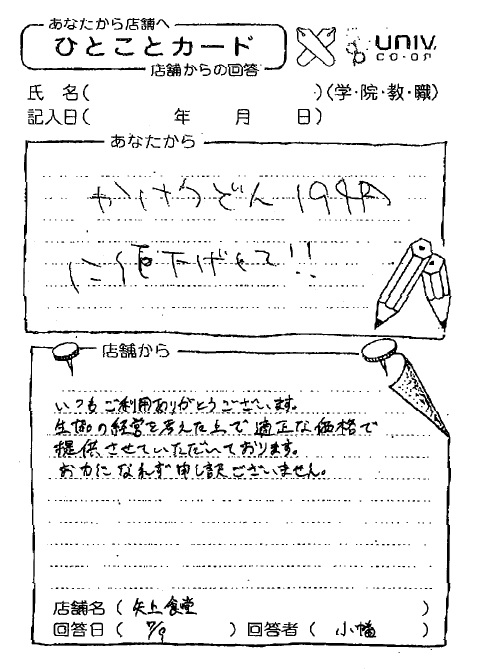 あなたから店舗へ
ひとことカード
店舗からの回答
UNIV.
CO-OP
氏 名( )(学・院・教・職)
記入日( 年 月 日)
あなたから
かけうどん 194円
に値下げして!!
店舗から
いつもご利用ありがとうございます。
生協の経営を考えた上で適正な価格で
提供させていただいております。
お力になれず申し訳ございません。
店舗名 ( 矢上食堂 )
回答日 ( 7/9 ) 回答者 ( 小幡 )